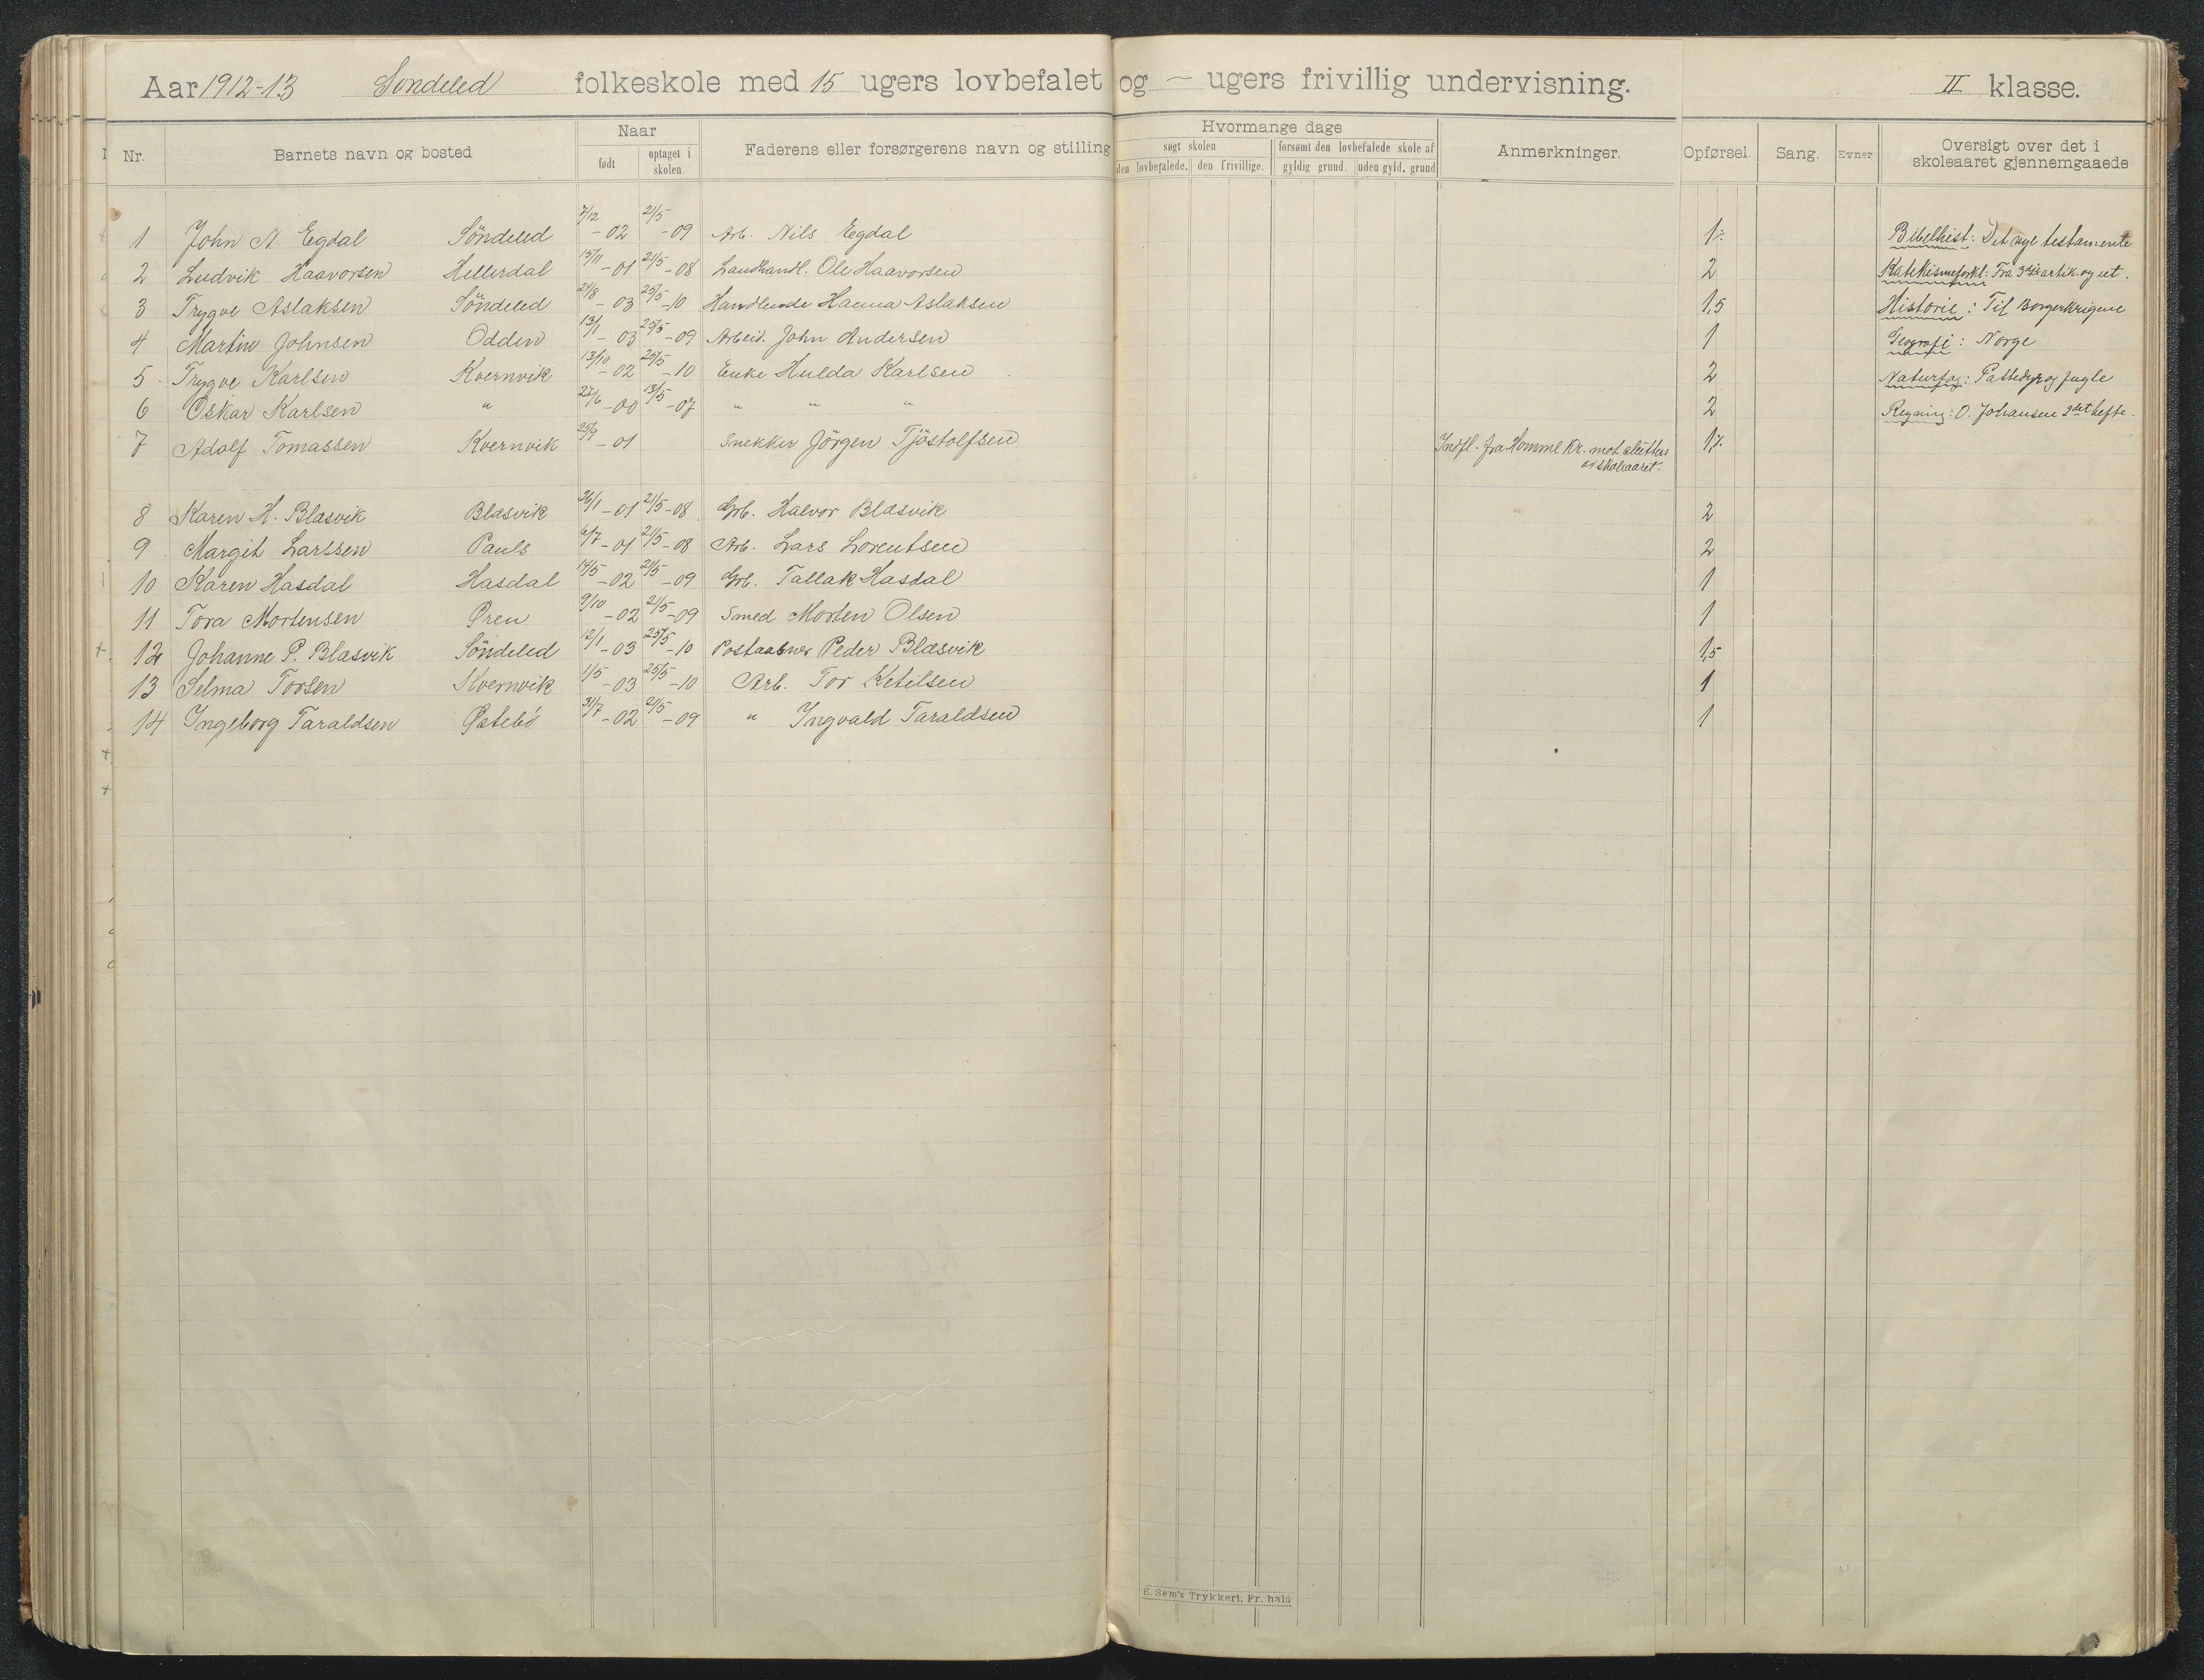 Aar 1912-13 Söndeled folkeskole med 15 ugers lovbefalet og — ugers frivillig undervisning. II klasse.
Nr. Barnets navn og bosted Naar født optaget i skolen. Faderens eller forsørgerens navn og stilling Hvormange dage søgt skolen den lovbefalede. den frivillige. forsømt den lovbefalede skole af gyldig grund. uden gyld. grund Anmerkninger. Opførsel. Sang. Evner Oversigt over det i skoleaaret gjennemgaaede
1 John N Egdal Söndeled 7/12-02 21/5-09 Arb. Nils Egdal 1÷ Bibelhist: Det nye testamente
2 Ludvik Haavorsen Hellerdal 15/11-01 21/5-08 Landhandl. Ole Haavorsen 2 Katekismeforkl: Fra 3dje artik. og ut.
3 Trygve Aslaksen Söndeled 24/8-03 25/5-10 Handlende Hanna Aslaksen 1,5 Historie: Til Borgerkrigene
4 Martin Johnsen Odden 13/1-03 25/5-09 Arbeid. John Andersen 1 Geografi: Norge
5 Trygve Karlsen Kvernvik 13/10-02 25/5-10 Enke Hulda Karlsen 2 Naturfag: Pattedyr og fugle
6 Oskar Karlsen " 27/6-00 13/5-07 " " " 2 Regning: O. Johansen 2det hefte.
7 Adolf Tomassen Kvernvik 25/9-01 Snekker Jörgen Tjöstolfsen Indfl. fra Homme Kr. mot slutten 1÷
av skoleaaret.
8 Karen H. Blasvik Blasvik 26/1-01 21/5-08 Grb. Halvor Blasvik 2
9 Margit Larssen Pauls 6/7-01 21/5-08 Arb. Lars Lorentsen 2
10 Karen Hasdal Hasdal 14/5-02 21/5-09 Grb. Tallak Hasdal 1
11 Tora Mortensen Øren 9/10-02 21/5-09 Smed Morten Olsen 1
12 Johanne P. Blasvik Söndeled 12/1-03 25/5-10 Postaabner Peder Blasvik 1,5
13 Selma Torsen Kvernvik 1/5-03 25/5-10 Arb. Tor Ketilsen 1
14 Ingeborg Taraldsen Østebö 31/7-02 21/5-09 " Ingvald Taraldsen 1
E. Sem's Trykkeri, Fr. hald